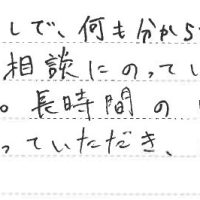 しで、何も分から
相談にのってい
。長時間の
っていただき、